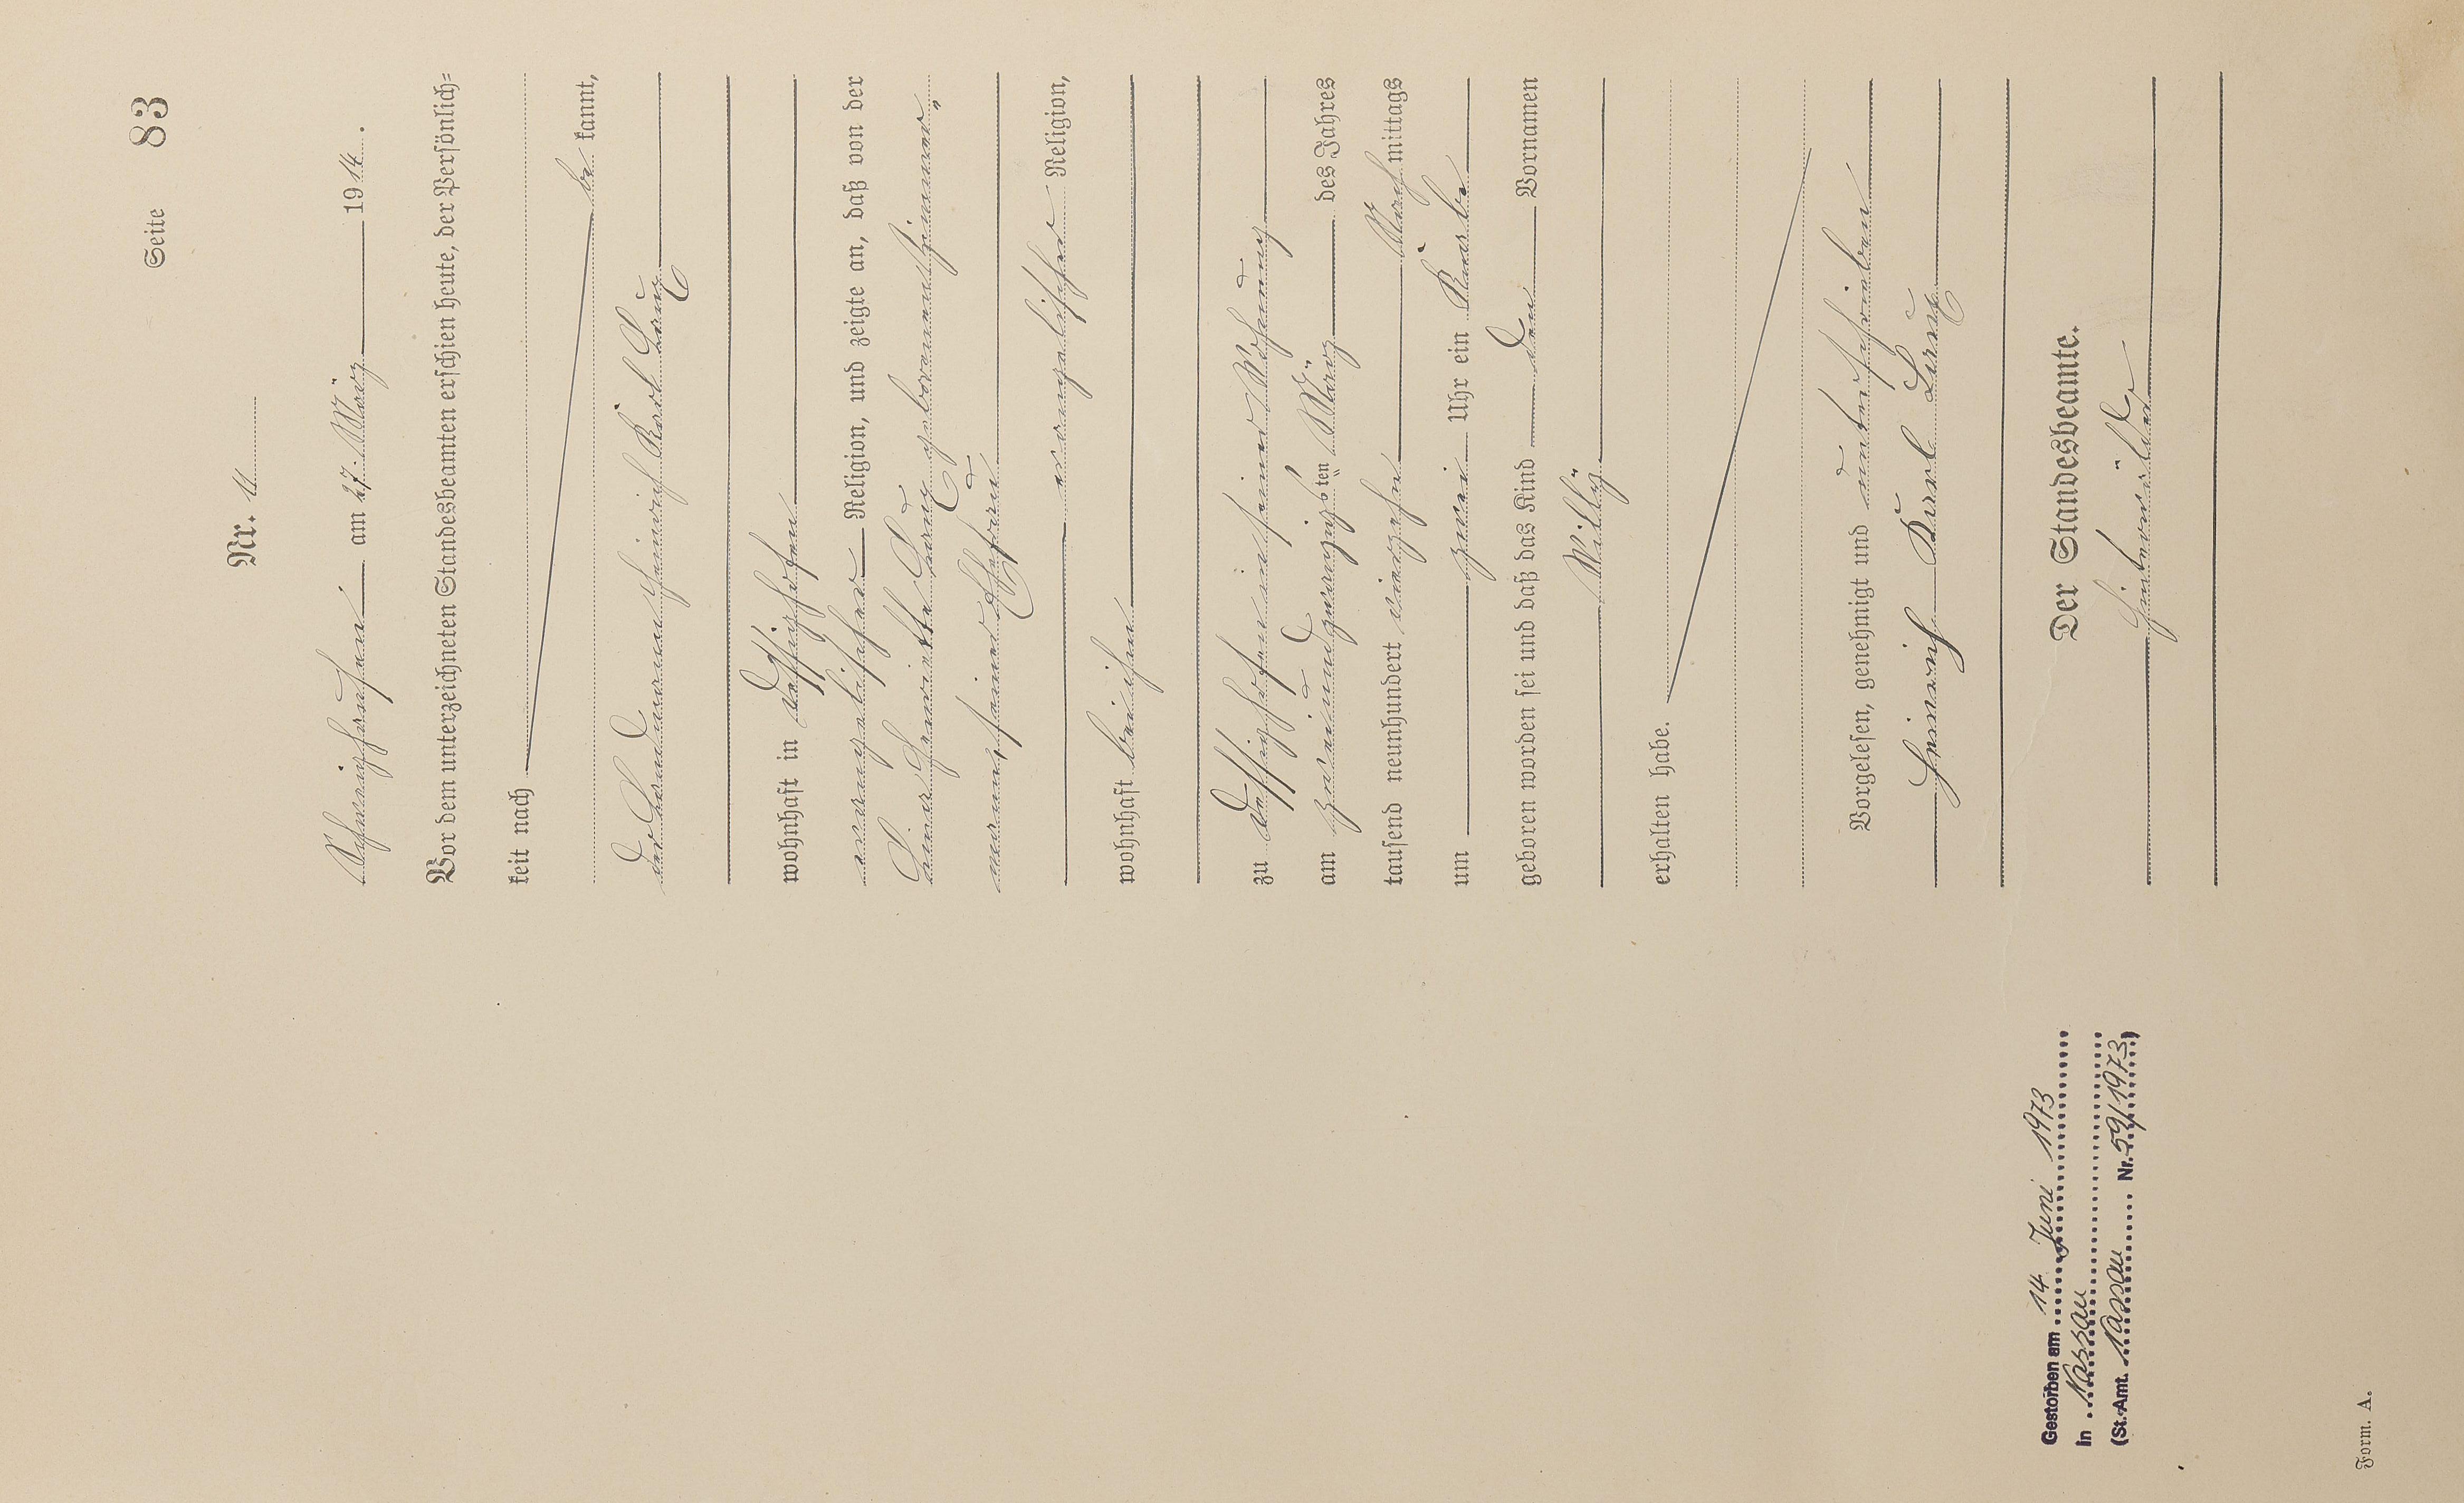 Seite 83
Nr.
Schweighausen am 27. März 1914.
Vor dem unterzeichneten Standesbeamten erschien heute, der Persönlich=
keit nach
be kannt,
der Landmann Heinrich Karl Laux
wohnhaft in Dessighofen
evangelischer Religion, und zeigte an, daß von der
Lina Henriette Laux geborenen Zimmer"
mann, seiner Ehefrau
evangelischer Religion,
wohnhaft bei ihm
zu Dessighofen in seiner Wohnung
am zweiundzwanzigsten März des Jahres
tausend neunhundert vierzehn Nachmittags
um zwei Uhr ein Knabe
geboren worden sei und daß das Kind den Vornamen
Willy
erhalten habe.
Vorgelesen, genehmigt und unterschrieben
Heinrich Karl Laux
Der Standesbeamte.
Hinterwälder
Gestorben am 14. Juni 1973
in Nassau
(St.-Amt. Nassau Nr. 59/1973)
Form. A.